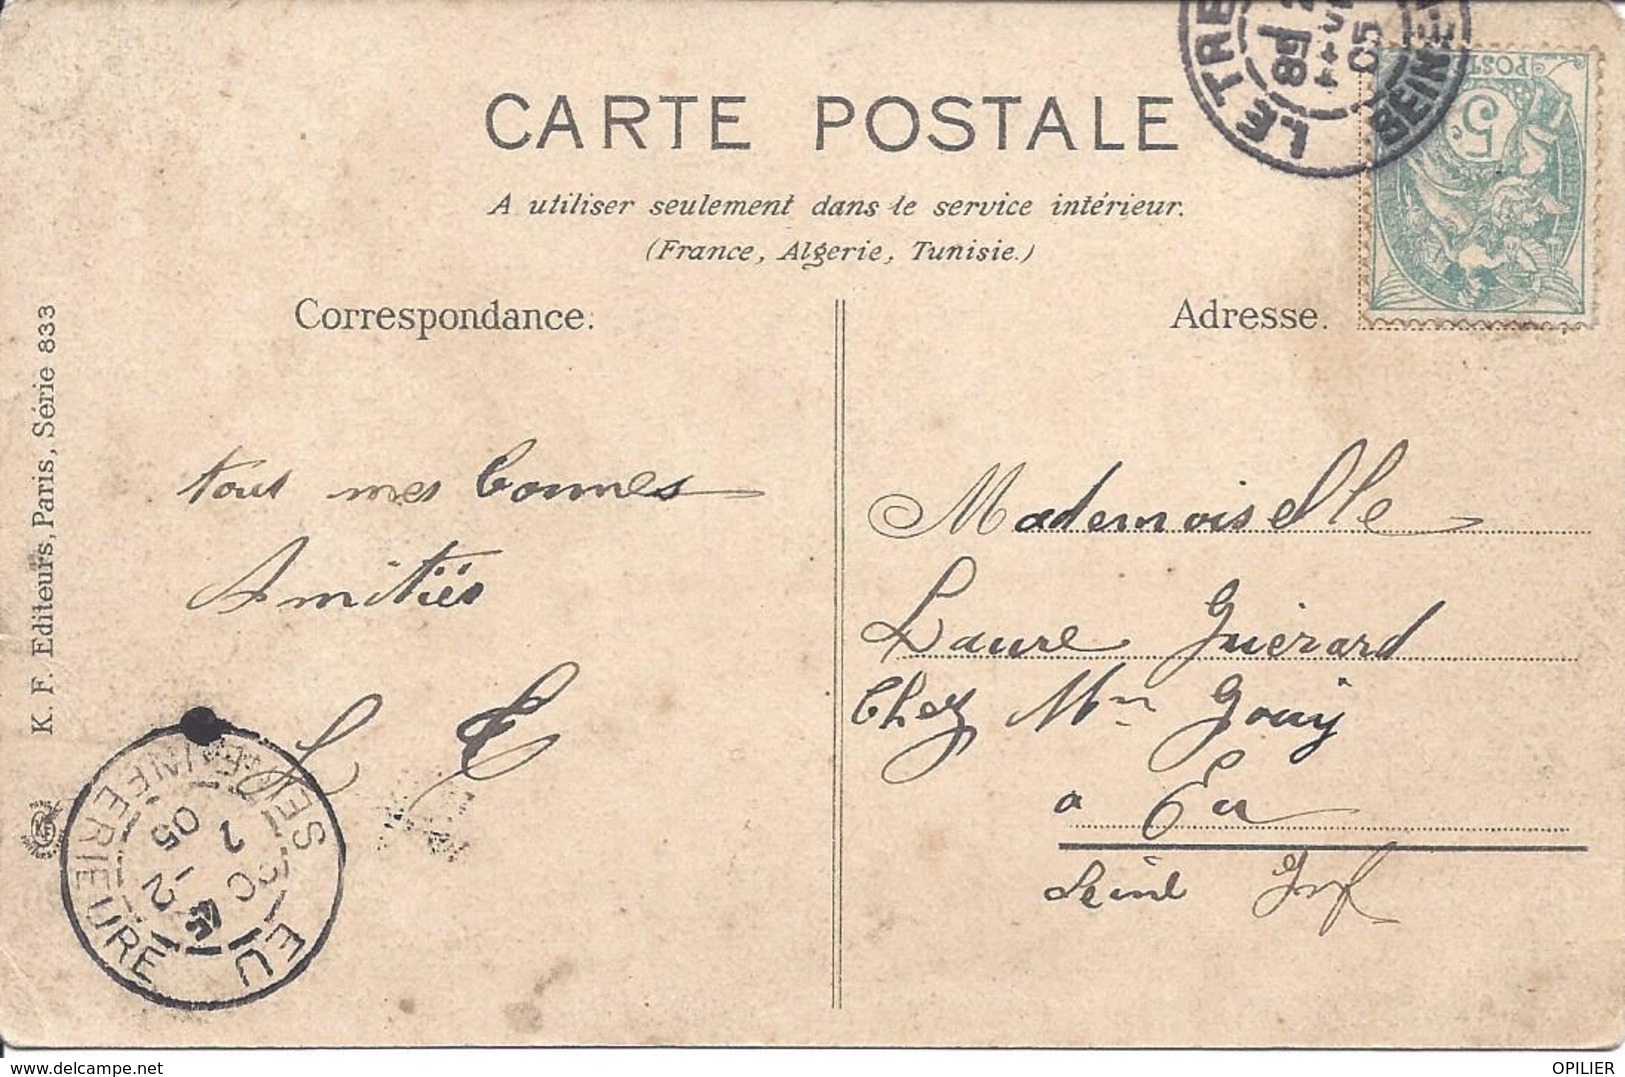 CARTE POSTALE
A utiliser seulement dans le service intérieur.
(France, Algerie, Tunisie.)
Correspondance.
Adresse.
K. F. Editeurs, Paris, Série 833
LE TRE
18
05
SEINE
POST
5c
tous mes bonnes
Amitiés
Mademoiselle
Laure Guérard
Chez Mme Gouy
a Eu
Seine Inf
EU
SEINE INFERIEURE
05
delcampe.net
OPILIER